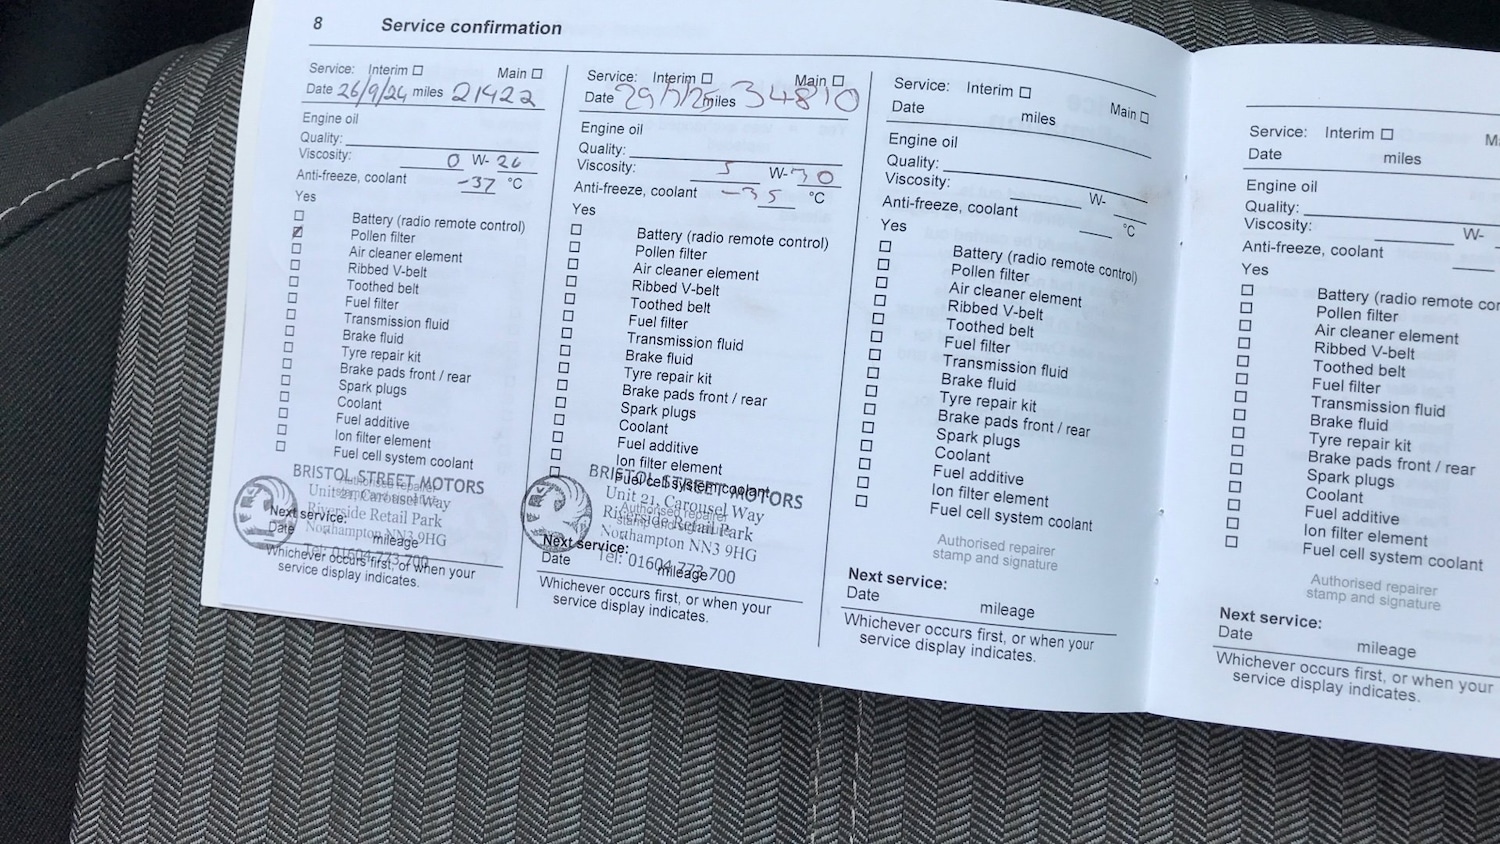 8 Service confirmation
Service: Interim ☐ Main ☐
Date 26/9/24 miles 21422
Engine oil
Quality:
Viscosity: 0 W- 20
Anti-freeze, coolant -37 °C
Yes
☐ Battery (radio remote control)
☑ Pollen filter
☐ Air cleaner element
☐ Ribbed V-belt
☐ Toothed belt
☐ Fuel filter
☐ Transmission fluid
☐ Brake fluid
☐ Tyre repair kit
☐ Brake pads front / rear
☐ Spark plugs
☐ Coolant
☐ Fuel additive
☐ Ion filter element
☐ Fuel cell system coolant
BRISTOL STREET MOTORS
Unit 21, Carousel Way
Riverside Retail Park
Northampton NN3 9HG
Tel: 01604 773 700
Authorised repairer
stamp and signature
Next service:
Date mileage
Whichever occurs first, or when your
service display indicates.
Service: Interim ☐ Main ☐
Date 29/7/25 miles 34810
Engine oil
Quality:
Viscosity: 5 W- 30
Anti-freeze, coolant -35 °C
Yes
☐ Battery (radio remote control)
☐ Pollen filter
☐ Air cleaner element
☐ Ribbed V-belt
☐ Toothed belt
☐ Fuel filter
☐ Transmission fluid
☐ Brake fluid
☐ Tyre repair kit
☐ Brake pads front / rear
☐ Spark plugs
☐ Coolant
☐ Fuel additive
☐ Ion filter element
☐ Fuel cell system coolant
BRISTOL STREET MOTORS
Unit 21, Carousel Way
Riverside Retail Park
Northampton NN3 9HG
Tel: 01604 773 700
Authorised repairer
stamp and signature
Next service:
Date mileage
Whichever occurs first, or when your
service display indicates.
Service: Interim ☐ Main ☐
Date miles
Engine oil
Quality:
Viscosity: W-
Anti-freeze, coolant °C
Yes
☐ Battery (radio remote control)
☐ Pollen filter
☐ Air cleaner element
☐ Ribbed V-belt
☐ Toothed belt
☐ Fuel filter
☐ Transmission fluid
☐ Brake fluid
☐ Tyre repair kit
☐ Brake pads front / rear
☐ Spark plugs
☐ Coolant
☐ Fuel additive
☐ Ion filter element
☐ Fuel cell system coolant
Authorised repairer
stamp and signature
Next service:
Date mileage
Whichever occurs first, or when your
service display indicates.
Service: Interim ☐
Date miles
Engine oil
Quality:
Viscosity: W-
Anti-freeze, coolant
Yes
☐ Battery (radio remote
☐ Pollen filter
☐ Air cleaner element
☐ Ribbed V-belt
☐ Toothed belt
☐ Fuel filter
☐ Transmission fluid
☐ Brake fluid
☐ Tyre repair kit
☐ Brake pads front / rear
☐ Spark plugs
☐ Coolant
☐ Fuel additive
☐ Ion filter element
☐ Fuel cell system coolant
Authorised repairer
stamp and signature
Next service:
Date mileage
Whichever occurs first, or when your
service display indicates.